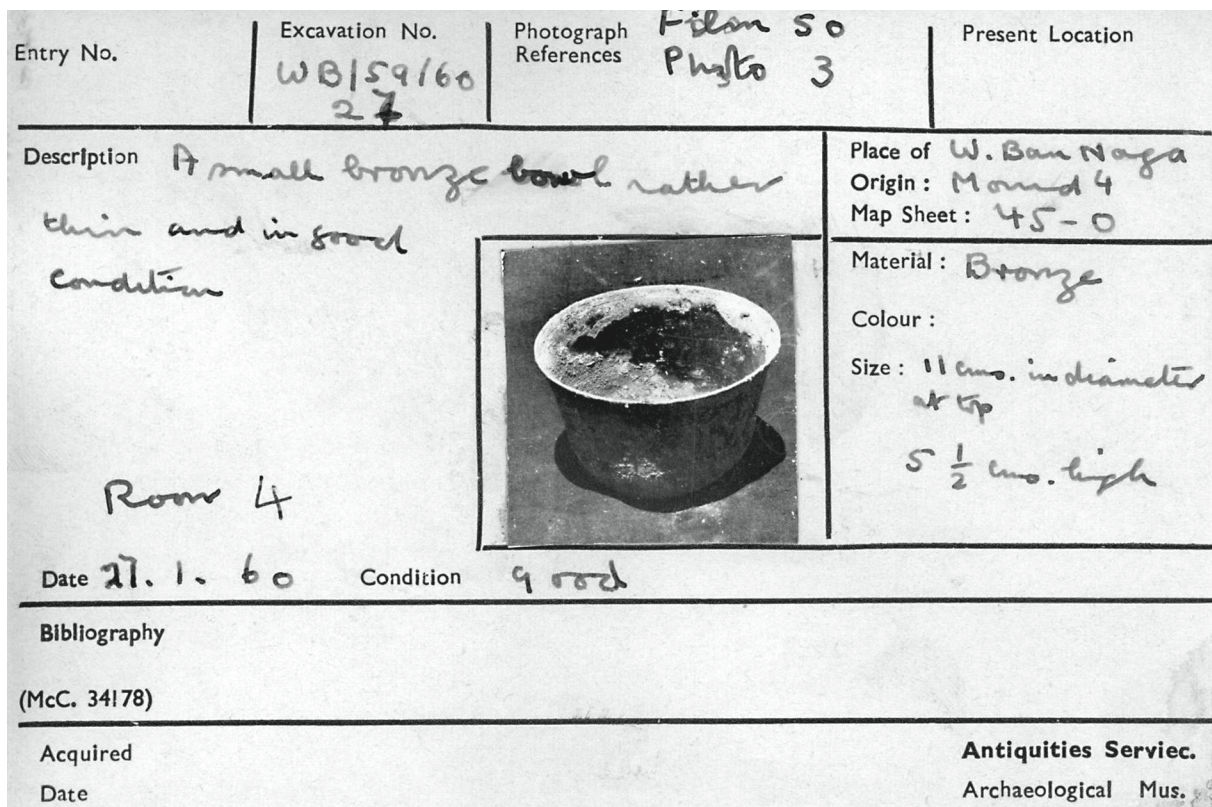 Entry No.
Excavation No.
WB/59/60
27
Photograph
References
Film 50
Photo 3
Present Location
Description A small bronze bowl rather
thin and in good
condition
Room 4
Place of W. Ban Naga
Origin : Mound 4
Map Sheet : 45-0
Material : Bronze
Colour :
Size : 11 cms. in diameter
at top
5 1/2 cms. high
Date 27. 1. 60 Condition good
Bibliography
(McC. 34178)
Acquired
Date
Antiquities Serviec.
Archaeological Mus.